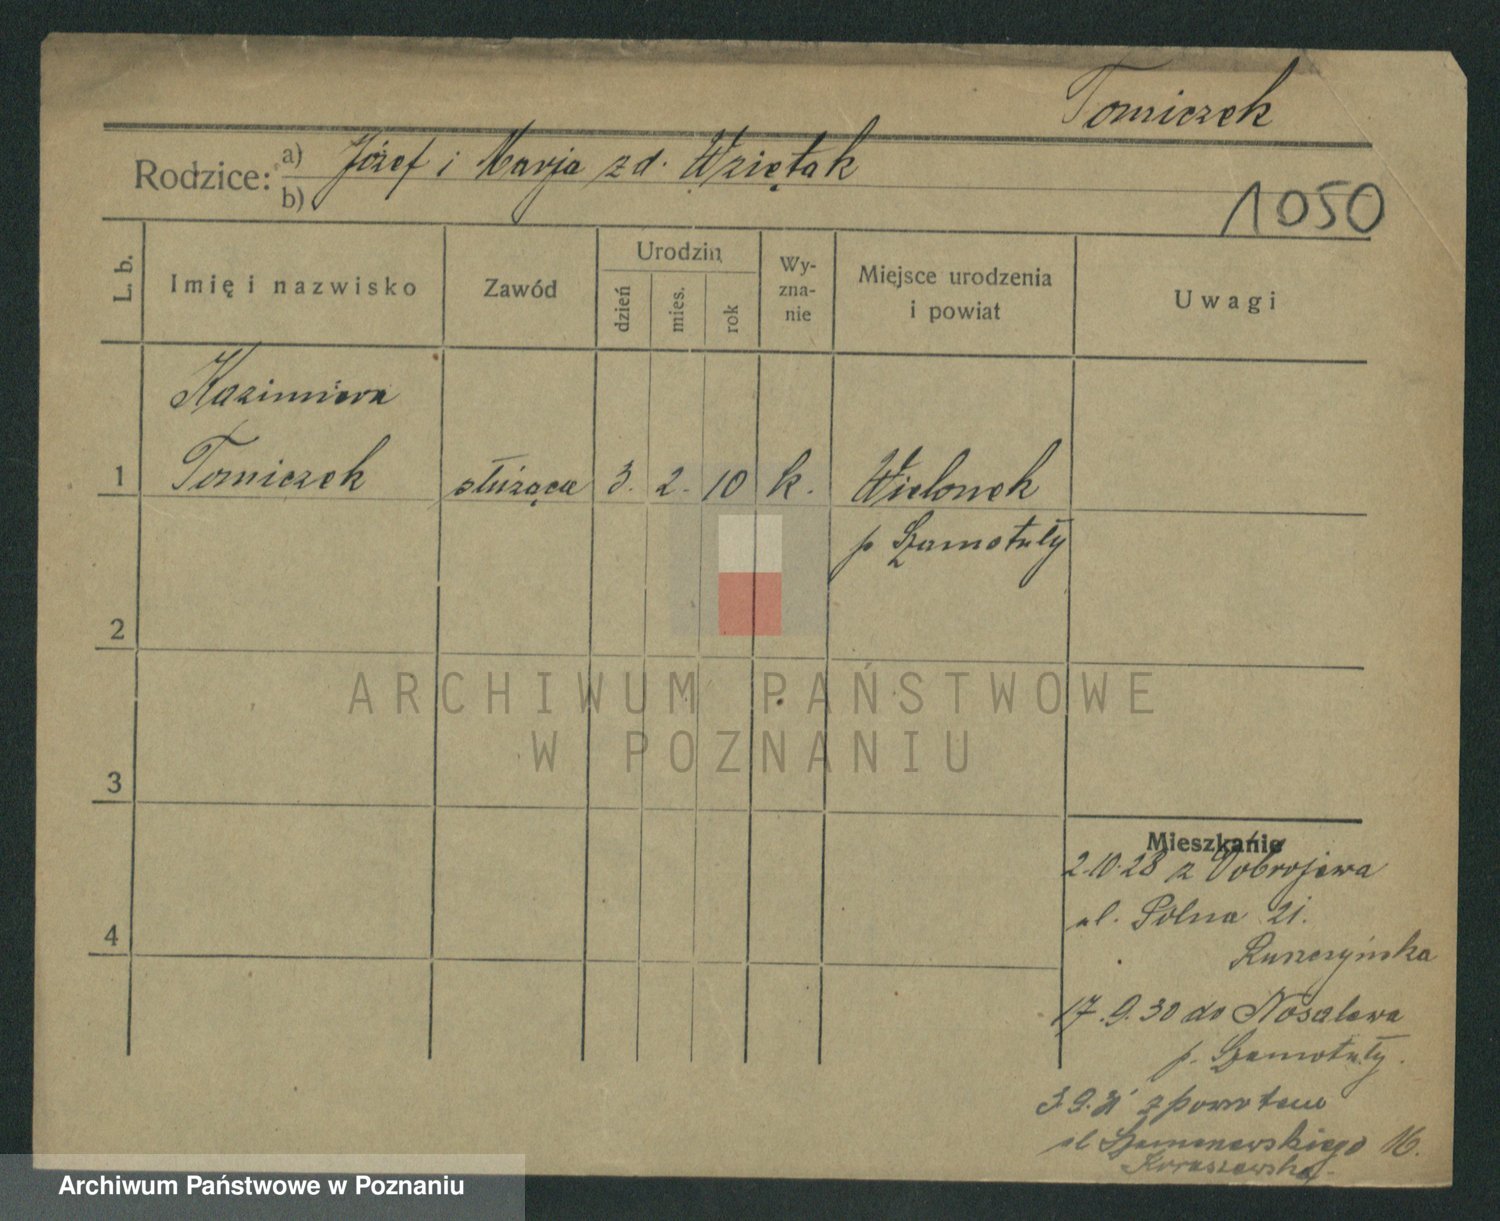 Tomiczek
Rodzice: a) Józef i Marja zd. Wziętak
b)
1050
L. b.
Imię i nazwisko
Zawód
Urodzin
dzień
mies.
rok
Wy-
zna-
nie
Miejsce urodzenia
i powiat
Uwagi
Kazimiera
1 Tomiczek służąca 3. 2. 10 k. Wielonek
p Szamotuły
2
3
4
Mieszkanie
2.10.28 z Dobrojewa
ul. Polna 21.
Ruszczyńska
17.9.30 do Nosalewa
p. Szamotuły.
3.9.31 z powrotem
ul 16.
ARCHIWUM PAŃSTWOWE
W POZNANIU
Archiwum Państwowe w Poznaniu